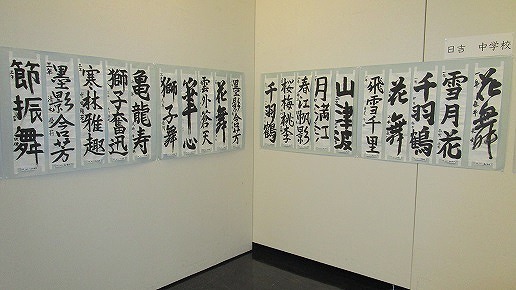 日吉　中学校
花舞
雪月花
千羽鶴
花舞
飛雪千里
山津波
月満江
春江帆影
桜梅桃李
千羽鶴
墨彩含芳
花舞
雲外蒼天
獅子舞
亀龍寿
獅子奮迅
寒林雅趣
墨彩含芳
節振舞